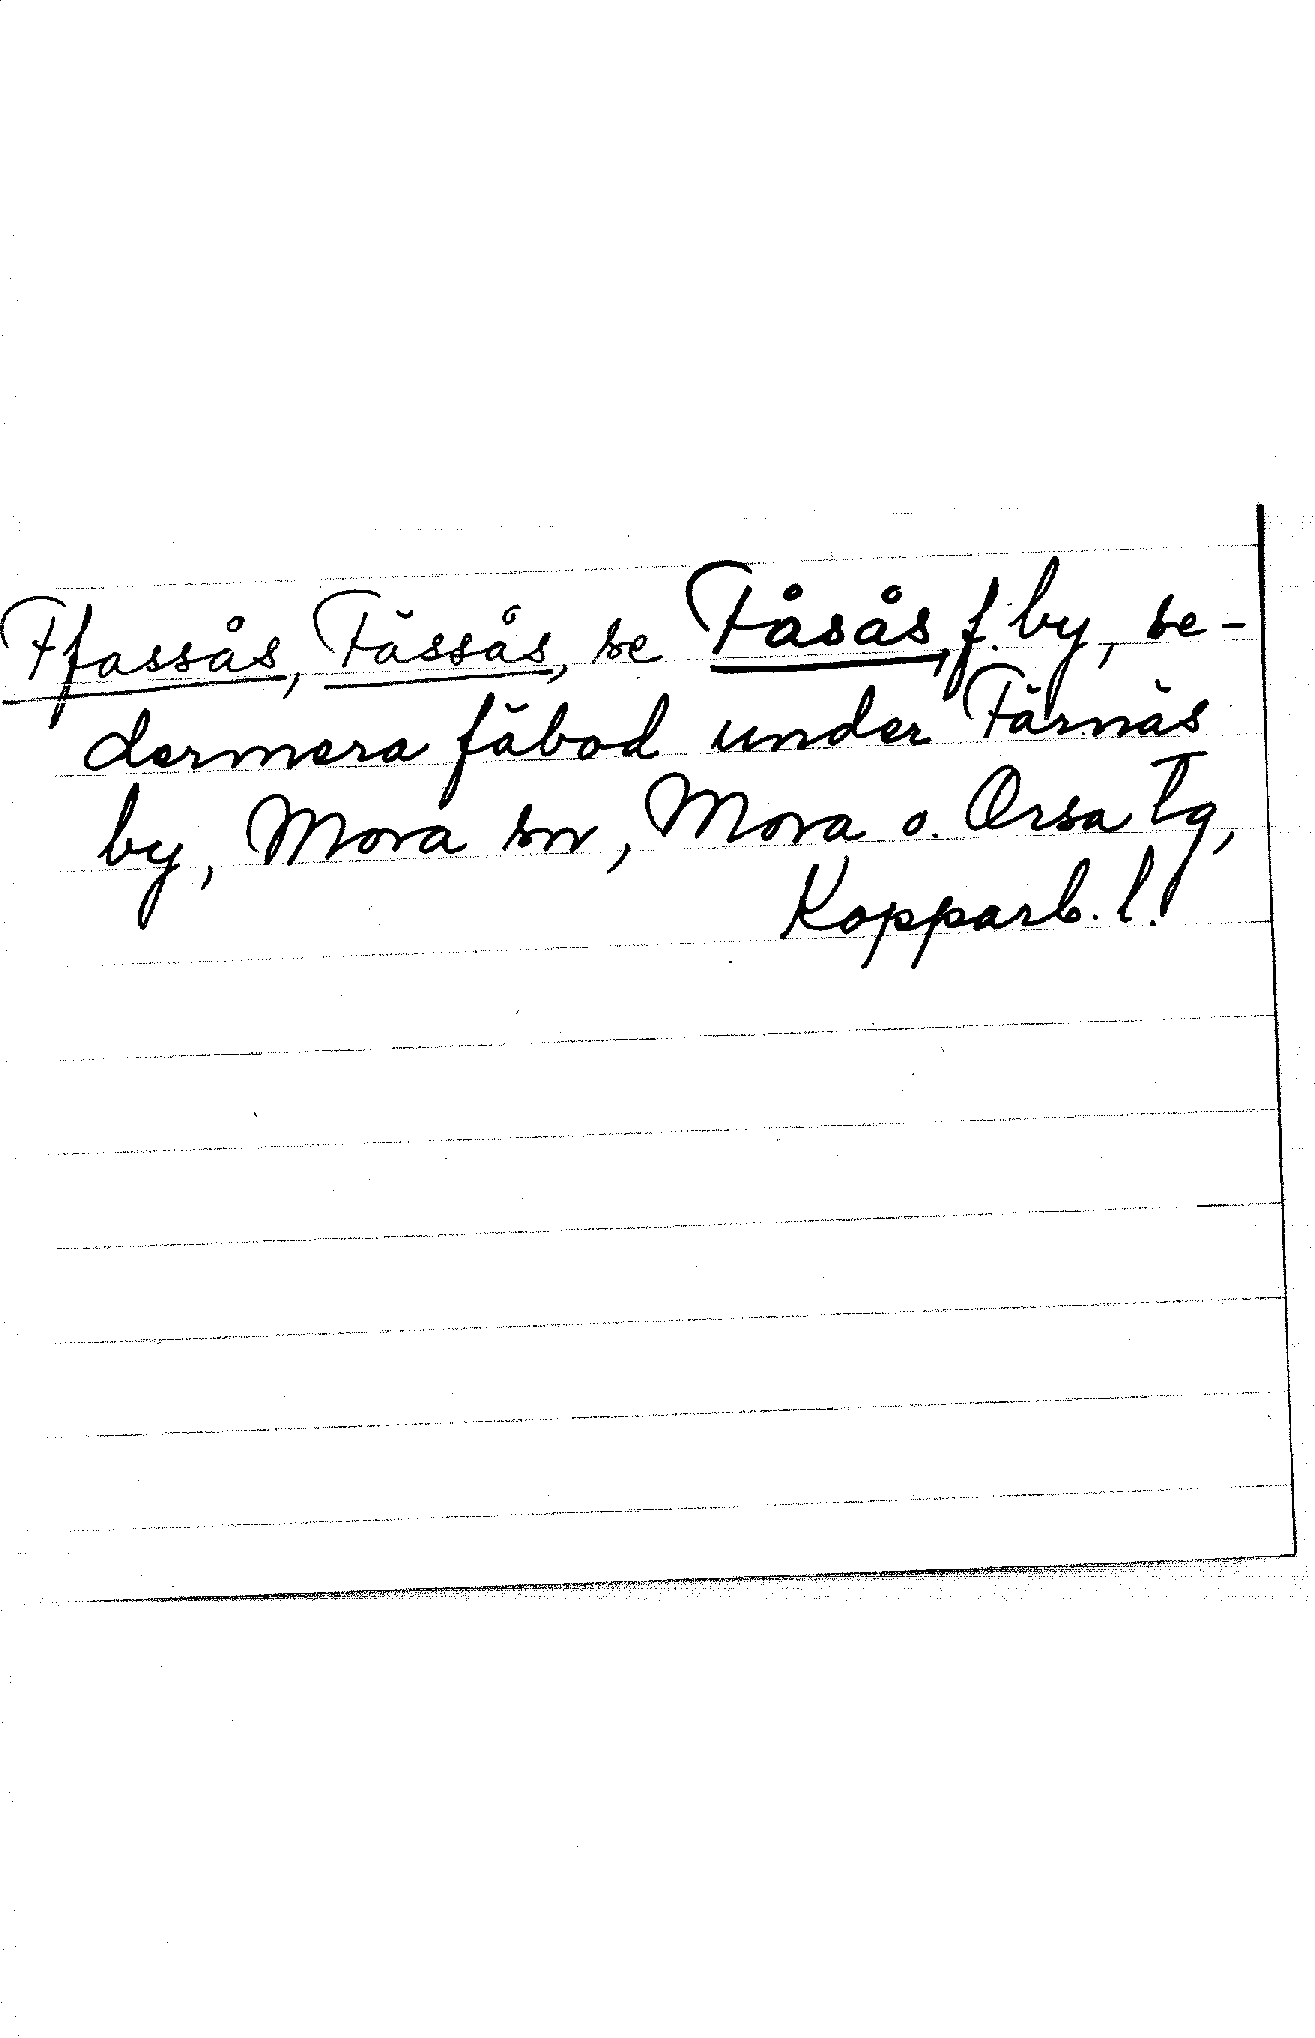 Ffassås, Fässås, se Fåsås, f. by, se-
dermera fäbod under Färnäs
by, Mora sn, Mora o. Orsa tg,
Kopparb. l.